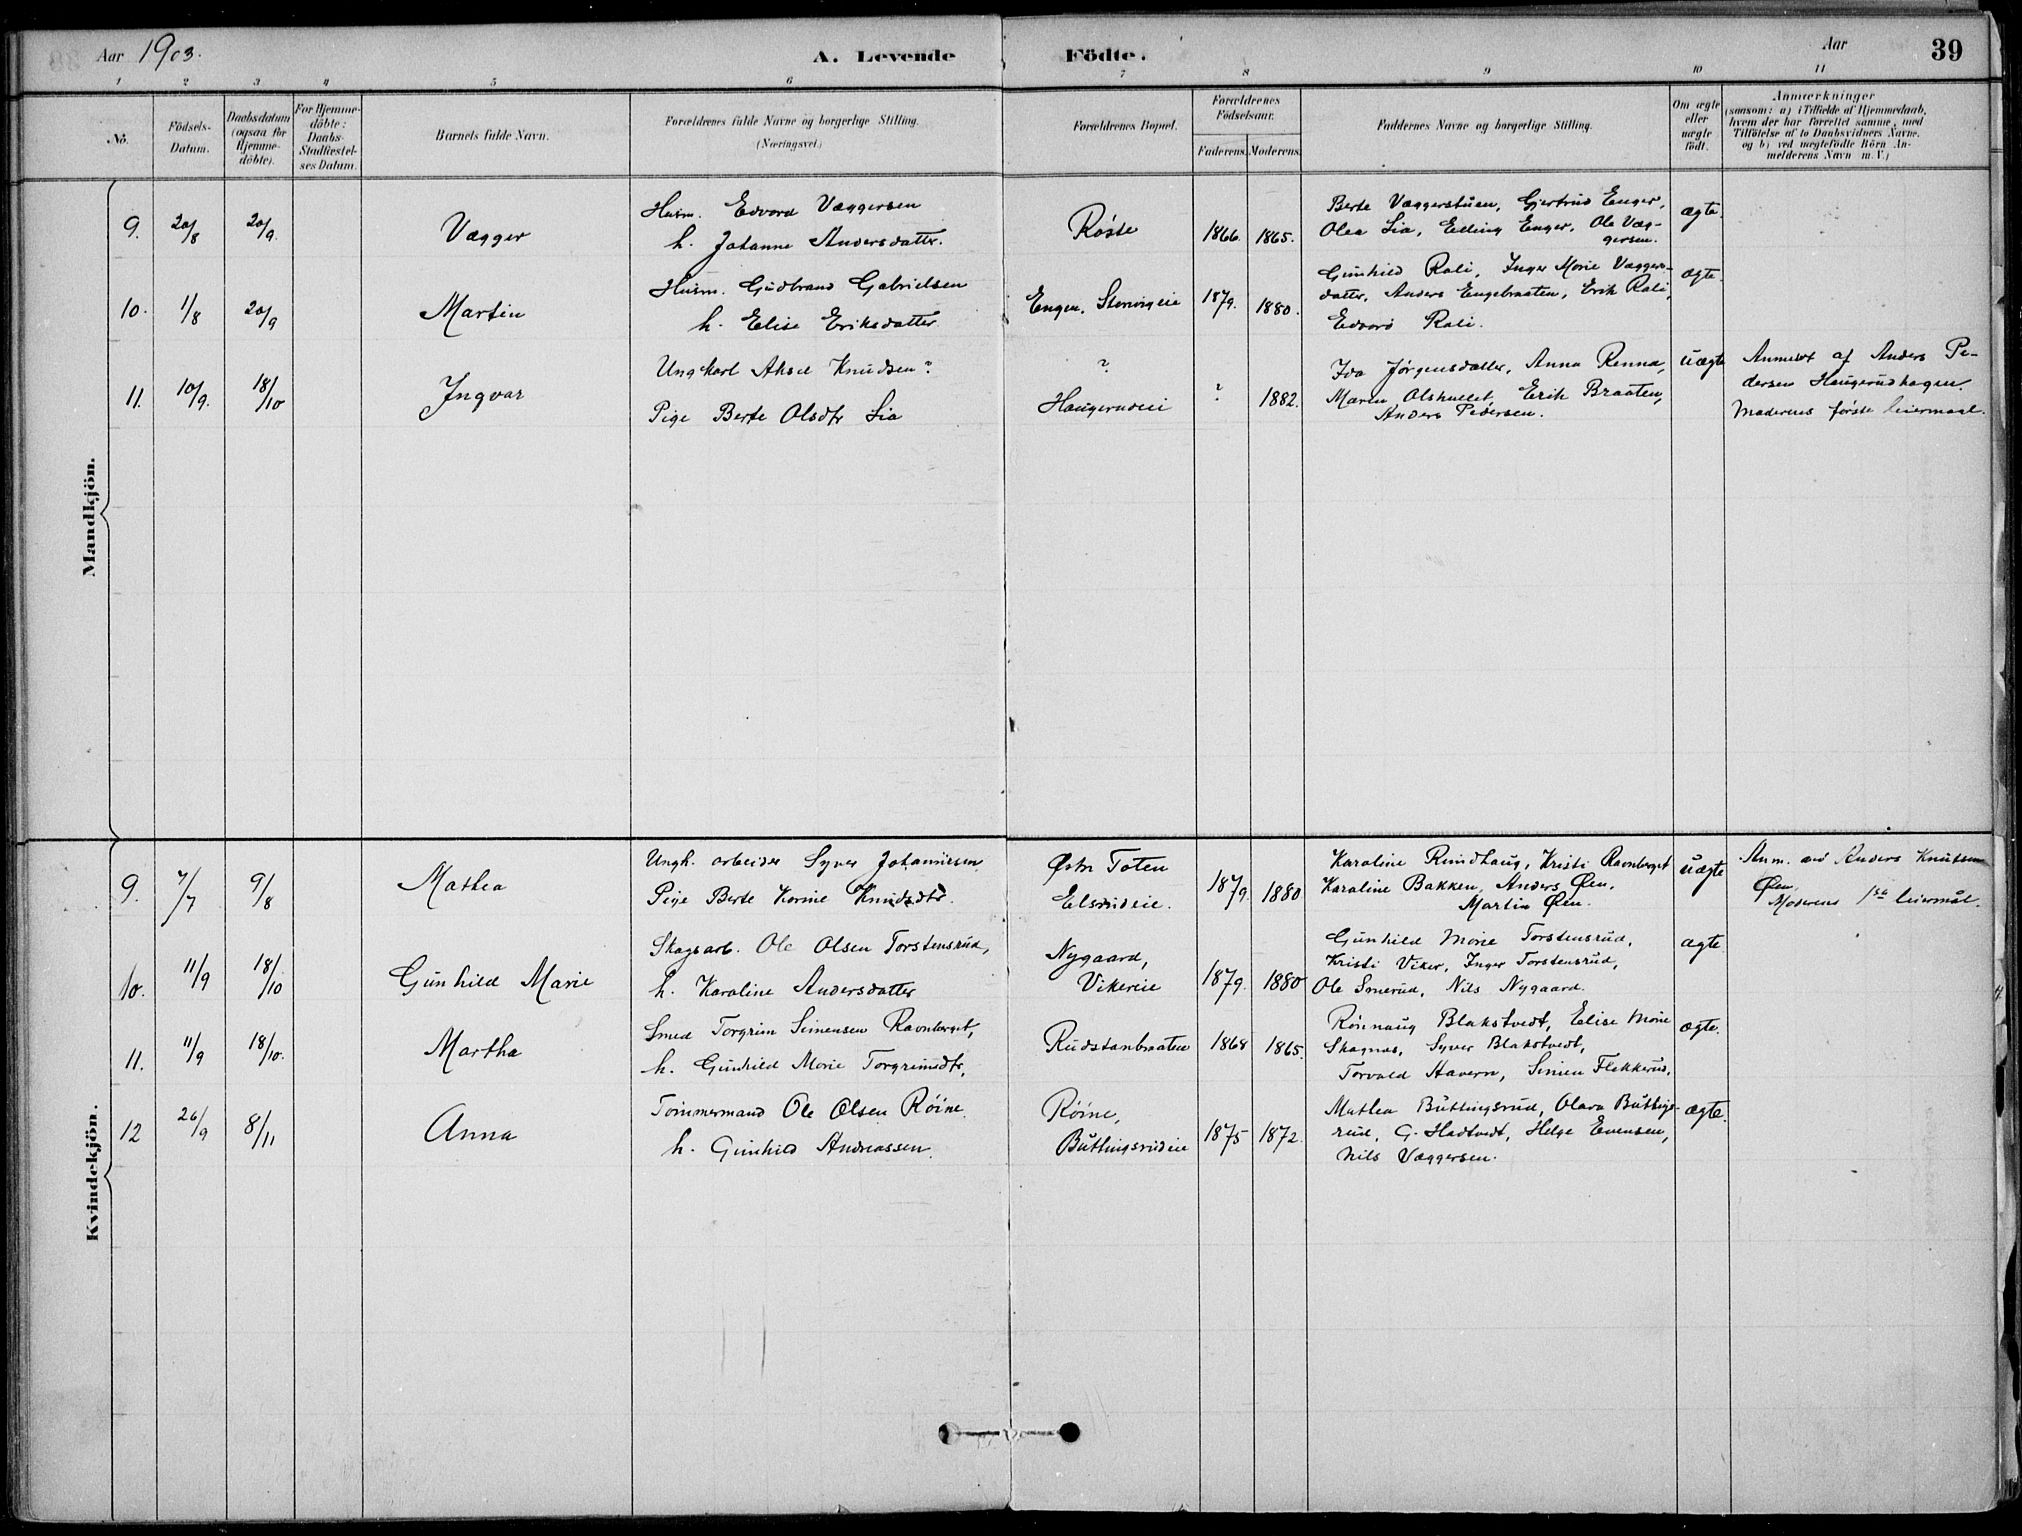 Aar 1903.
A. Levende Födte.
Aar
39
1 2 3 4 5 6 7 8 9 10 11
No.
Födsels-
Datum.
Daabsdatum
(ogsaa for
Hjemme-
döbte).
For Hjemme-
döbte:
Daabs-
Stadfæstel-
ses Datum.
Barnets fulde Navn.
Forældrenes fulde Navne og borgerlige Stilling.
(Næringsvei.)
Forældrenes Bopæl.
Forældrenes
Födselsaar.
Faderens. Moderens.
Faddernes Navne og borgerlige Stilling.
Om ægte
eller
uægte
født.
Anmærkninger
(saasom: a) i Tilfælde af Hjemmedaab,
hvem der har forrettet samme, med
Tilföielse af to Daabsvidners Navne.
og b) ved uægtefödte Börn An-
melderens Navn m. V.)
Mandkjön.
9. 20/8 20/9. Vægger
Husm. Edvard Væggersen
h. Johanne Andersdatter.
Røste 1866. 1865.
Berte Væggerstuen, Gjertrud Enger,
Olea Lia, Elling Enger, Ole Væg-
gersen.
ægte.
10. 1/8 20/9 Martin
Husm. Gudbrand Gabrielsen
h. Elise Eriksdatter
Engen, Storvigeie 1879. 1880.
Gunhild Rali, Inger Marie Væggers-
datter, Anders Engebraaten, Erik Rali,
Edvard Rali.
ægte
11. 10/9. 18/10 Ingvar
Ungkarl Aksel Knudsen?
Pige Berte Olsdtr Lia
?
Haugerudeie ? 1882.
Ida Jørgensdatter, Anna Renna,
Maren Olshullet, Erik Braaten,
Anders Pedersen.
uægte
Anmeldt af Anders Pe-
dersen Haugerudhagen.
Moderens første leiermaal.
Kvindekjön.
9. 7/7 9/8 Mathea
Ungk. arbeider Syver Johannesen
Pige Berte Karine Knudsdtr.
Østre Toten
Elsrudeie. 1879. 1880
Karoline Rundhaug, Kristi Ravnberget
Karoline Bakken, Anders Øen.
Martin Øen.
uægte
Anm. ved Anders Knutsen
Øen.
Moderens 1ste leiermål.
10. 11/9 18/10 Gunhild Marie
Skogsarb. Ole Olsen Torstensrud,
h. Karoline Andersdatter
Nygaard,
Vikereie 1879. 1880
Gunhild Marie Torstensrud,
Kristi Viker, Inger Torstensrud,
Ole Smerud, Nils Nygaard.
ægte
11. 11/9 18/10. Martha
Smed Torgrim Simensen Ravnberget,
h. Gunhild Marie Torgrimsdtr,
Rudstanbraaten 1868 1865.
Rønnaug Blakstvedt, Elise Marie
Skagnæs, Syver Blakstvedt,
Torvald Havern, Simen Flekkerud.
ægte.
12 26/9 8/11 Anna
Tømmermand Ole Olsen Røine
h. Gunhild Andreassen.
Røine,
Buttingsrudeie 1875 1872.
Mathea Buttingsrud, Olava Buttings-
rud, G. Hadtvedt, Helge Evensen,
Nils Væggersen.
ægte.